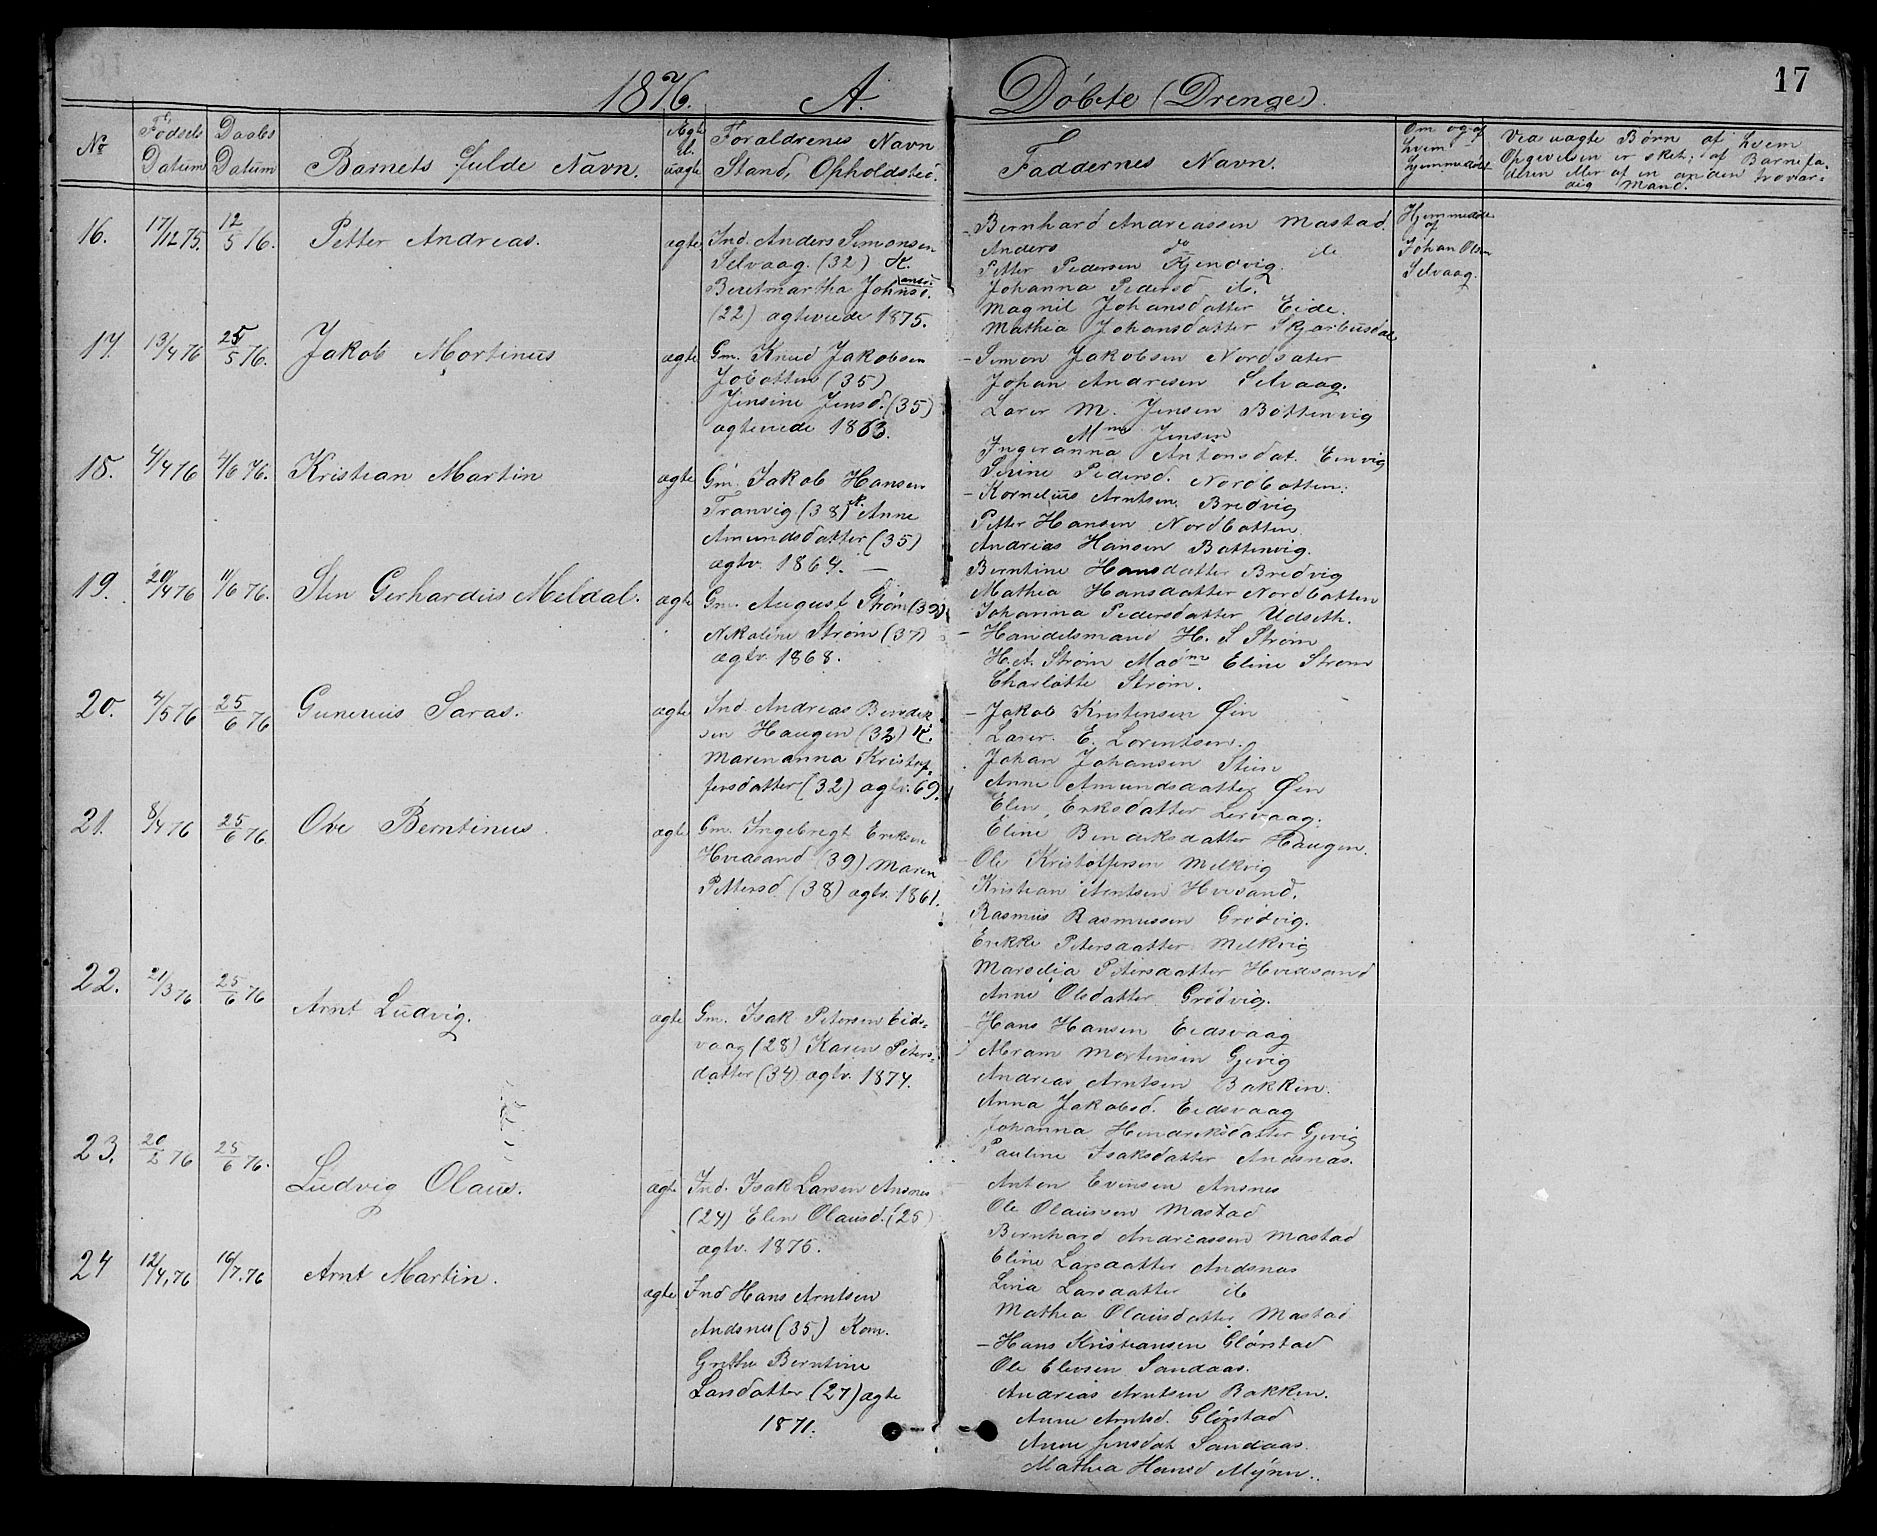 1876. A. Döbte (Drenge). 17
No
Fødsels Datum
Daabs Datum
Barnets fulde Navn.
Ægte el. uægte
Foraldrenes Navn
Stand, Opholdsted.
Faddernes Navn.
Om og af hvem hjemmedøbt
Ved uagte Børn af hvem
Opgivelsen er sket; af Barnefa-
deren eller af en anden trovær-
dig Mand.
16. 17/12 75. 12/5 76. Petter Andreas. ægte
Ind. Anders Simonsen
Selvaag. (32) K.
Beretmartha Johnsd.
(22) agteviede 1875.
Bernhard Andreassen Mastad.
Anders do de
Petter Pedersen Kjendvig.
Johanna Pedersd de.
Magnil Johansdatter Eide.
Mathea Johansdatter
Hjemmedøbt
af
Johan Olsen
Selvaag.
17. 13/4 76 25/5 76. Jakob Mortinus ægte
Gm. Knud Jakobsen
(35)
Jensine Jensd. (35)
agteviede 1863.
Simon Jakobsen Nordsater
Johan Andresen Selvaag.
Larer M. Jensen Bottenvig
Mme Jensen
Ingeranna Antonsdat. Eenvig
Serine Pedersd. Nordbotten.
18. 4/4 76 4/6 76. Kristian Martin ægte
Gm. Jakob Hansen
Tranvig (38) K. Anne
Amundsdatter (35)
agtv. 1864. —
Kornelius Arntsen Bredvig
Petter Hansen Nordbotten
Andreas Hansen Bottenvig.
Berntine Hansdatter Bredvig
Mathea Hansdatter Nordbotten
Johanna Pedersdatter Udseth.
19. 20/4 76 11/6 76. Sten Gerhardus Meldal. ægte
Gm. August Strøm (39)
Nikoline Strøm (37)
agtv. 1868.
Handelsmand H. S Strøm
H. A. Strøm Madme Eline Strøm
Charlotte Strøm.
20. 4/5 76 25/6 76 Gunerius Saras. ægte
Ind. Andreas Bendik
sen Haugen (32) K.
Marenanna Kristof-
fersdatter (32) agtv. 69.
Jakob Kristensen Øien
Larer. E. Lorentsen.
Johan Johansen Stien
Anne Amundsdatter Øien
Elen Eriksdatter Lervaag.
Eline Bendiksdatter Haugen.
21. 8/4 76 25/6 76. Ove Berntinus. ægte
Gm. Ingebregt Eriksen
Hvidsand (39) Maren
Pettersd (38) agtv. 1861.
Ole Kristoffersen Melkvig
Kristian Arntsen Hvisand.
Rasmus Rasmussen Grødvig.
Erikke Petersdatter Melkvig
Marselia Petersdatter Hvidsand
Anne Olsdatter Grødvig.
22. 21/3 76 25/6 76 Arnt Ludvig. ægte
Gm. Isak Petersen Eids-
vaag (28) Karen Peters-
datter (34) agtv. 1874.
Hans Hansen Eidsvaag
Abram Mortensen Gjevig
Andreas Arntsen Bakken.
Anna Jakobsd. Eidsvaag
Johanna Hendriksdatter Gjevig
Pauline Isaksdatter Andsnas.
23. 20/2 76 25/6 76. Ludvig Olaus. ægte
Ind. Isak Larsen Ansnes
(24) Elen Olausd. (25)
agtv. 1875.
Anton Evensen Ansnes
Ole Olaussen Mastad
Bernhard Andreassen Mastad
Eline Larsdatter Andsnas
Lina Larsdatter de
Mathea Olausdatter Mastad
24 12/4 76 16/7 76 Arnt Martin. ægte
Ind Hans Arntsen
Andsnes (35) Kon.
Grethe Berntine
Larsdatter (27) agte
1871.
Hans Kristiansen Glørstad
Ole Elevsen Sandaas.
Andreas Arntsen Bakken.
Anne Arntsd. Glørstad
Anne Jensdat Sandaas.
Mathea Hansd Mÿren.